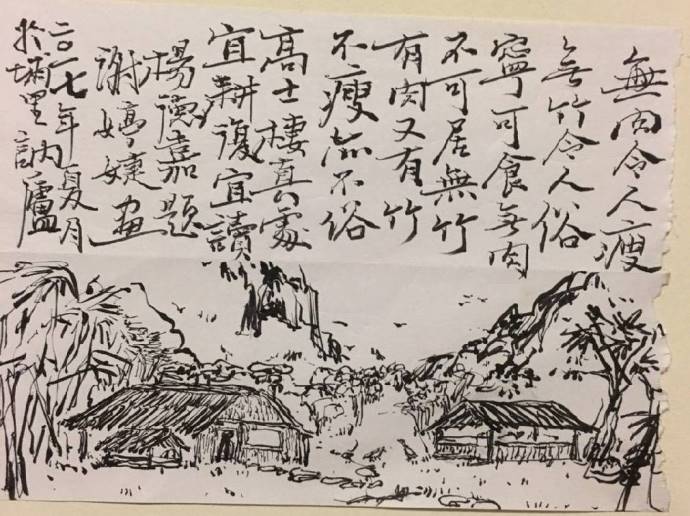 無肉令人瘦
無竹令人俗
寧可食無肉
不可居無竹
有肉又有竹
不瘦亦不俗
高士棲真處
宜耕復宜讀
楊德嘉題
謝婷婕畫
二〇一七年夏月
於埔里訥廬